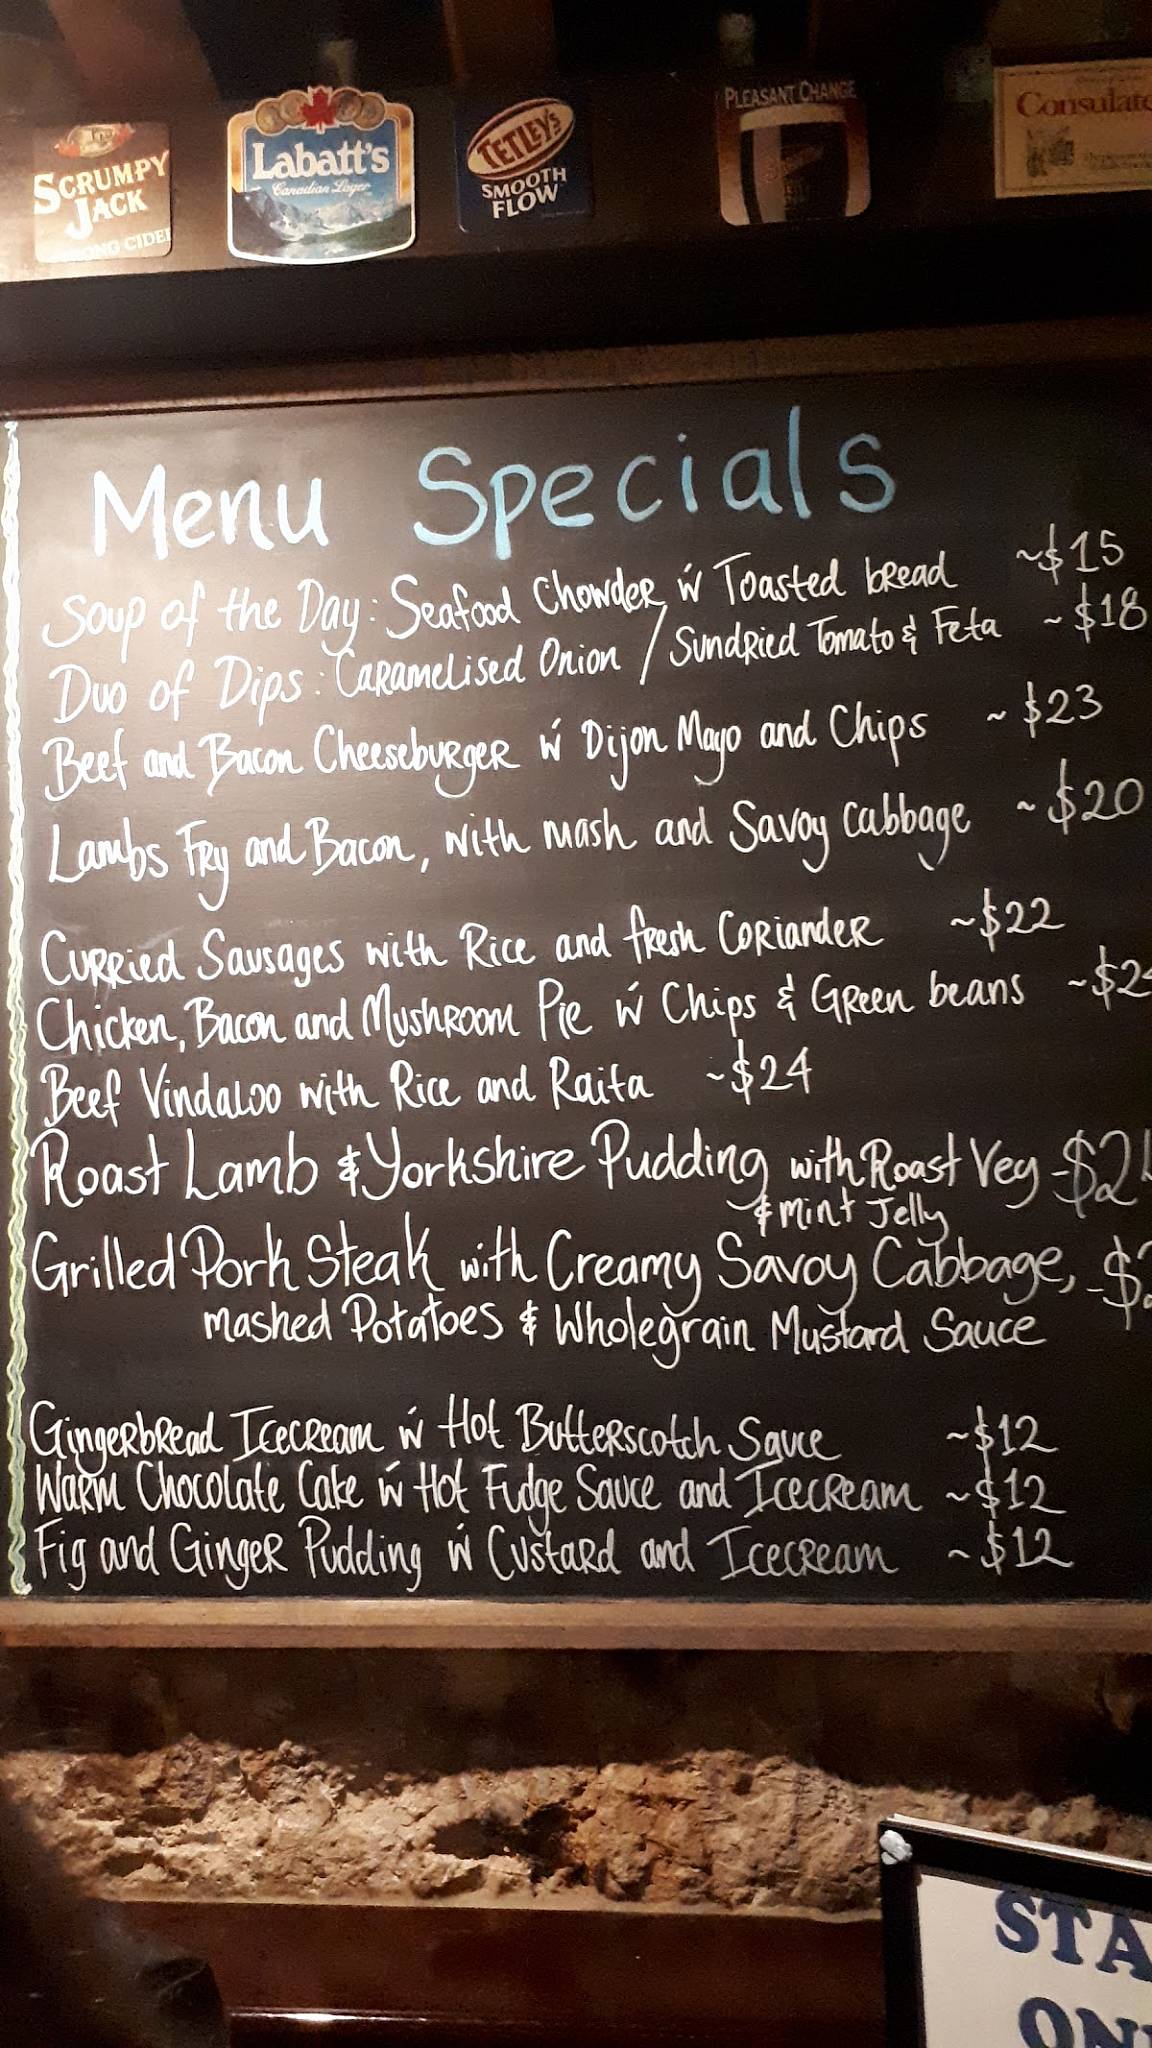 SCRUMPY
JACK
Labatt's
Canadian Lager
TETLEY'S
SMOOTH
FLOW
PLEASANT CHANGE
Consulate
Menu Specials
Soup of the Day: Seafood Chowder w Toasted bread ~$15
Duo of Dips: Caramelised Onion / Sundried Tomato & Feta ~$18
Beef and Bacon Cheeseburger w Dijon Mayo and Chips ~$23
Lambs Fry and Bacon, with mash and Savoy Cabbage ~$20
Curried Sausages with Rice and fresh Coriander ~$22
Chicken, Bacon and Mushroom Pie w Chips & Green beans
Beef Vindaloo with Rice and Raita ~$24
Roast Lamb & Yorkshire Pudding with Roast Veg
& mint Jelly
Grilled Pork Steak with Creamy Savoy Cabbage,
mashed Potatoes & Wholegrain Mustard Sauce
Gingerbread Icecream w Hot Butterscotch Sauce ~$12
Warm Chocolate Cake w Hot Fudge Sauce and Icecream ~$12
Fig and Ginger Pudding w Custard and Icecream ~$12
STA
ON